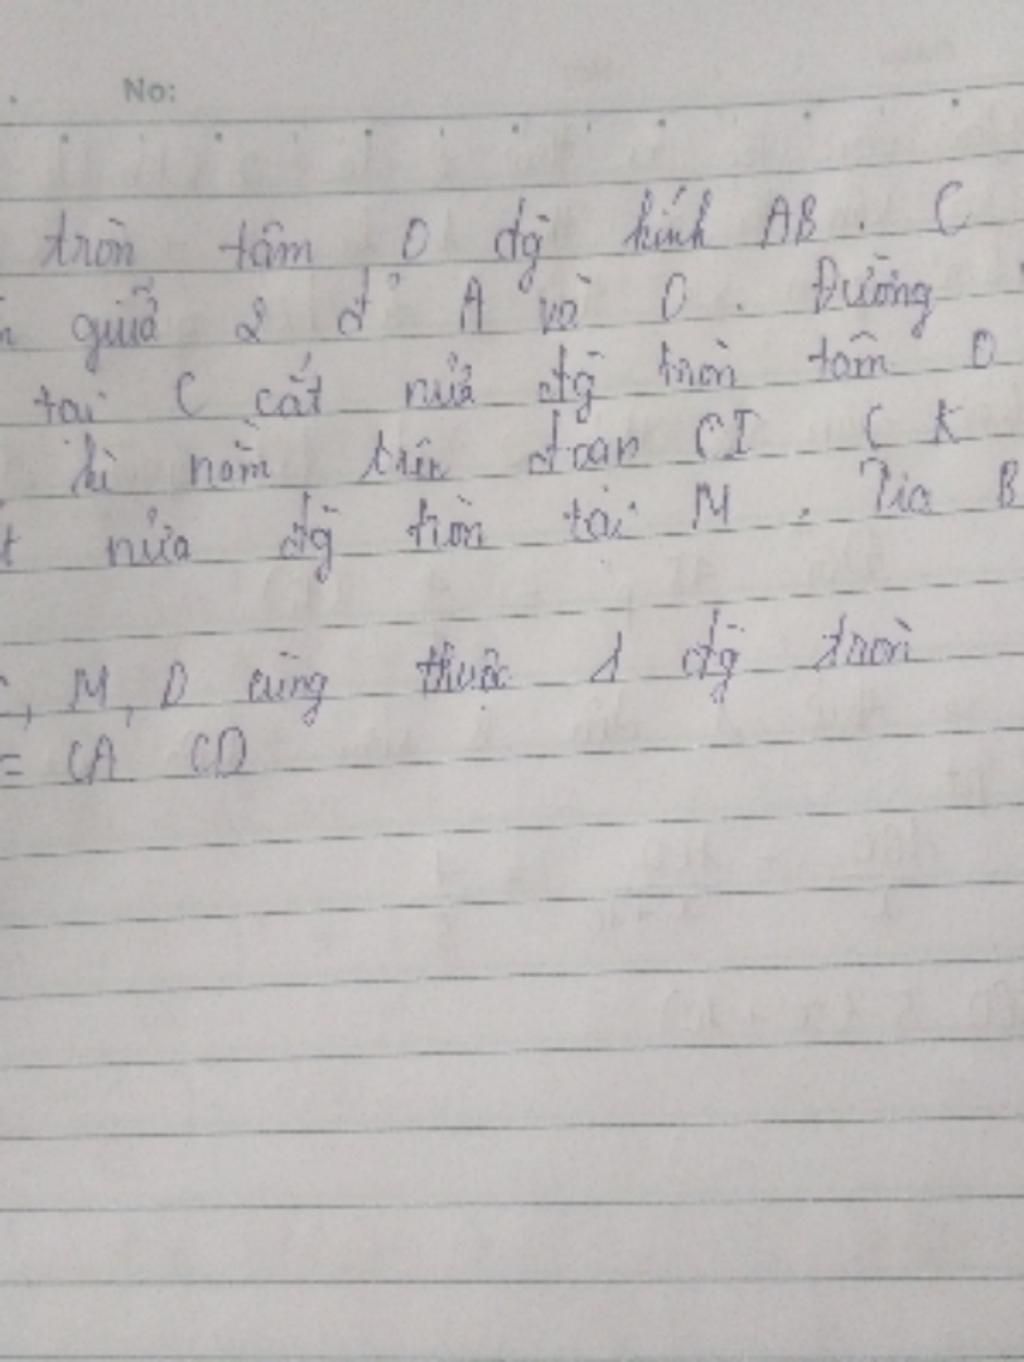 No:
tròn tâm O đg kính AB. C
giữa 2 đ' A và O. Đường
tại C cắt nửa đg tròn tâm O
kì nằm trên đoạn CI C K
nửa đg tròn tại M. Tia B
, M, D cùng thuộc 1 đg tròn
= CA CD